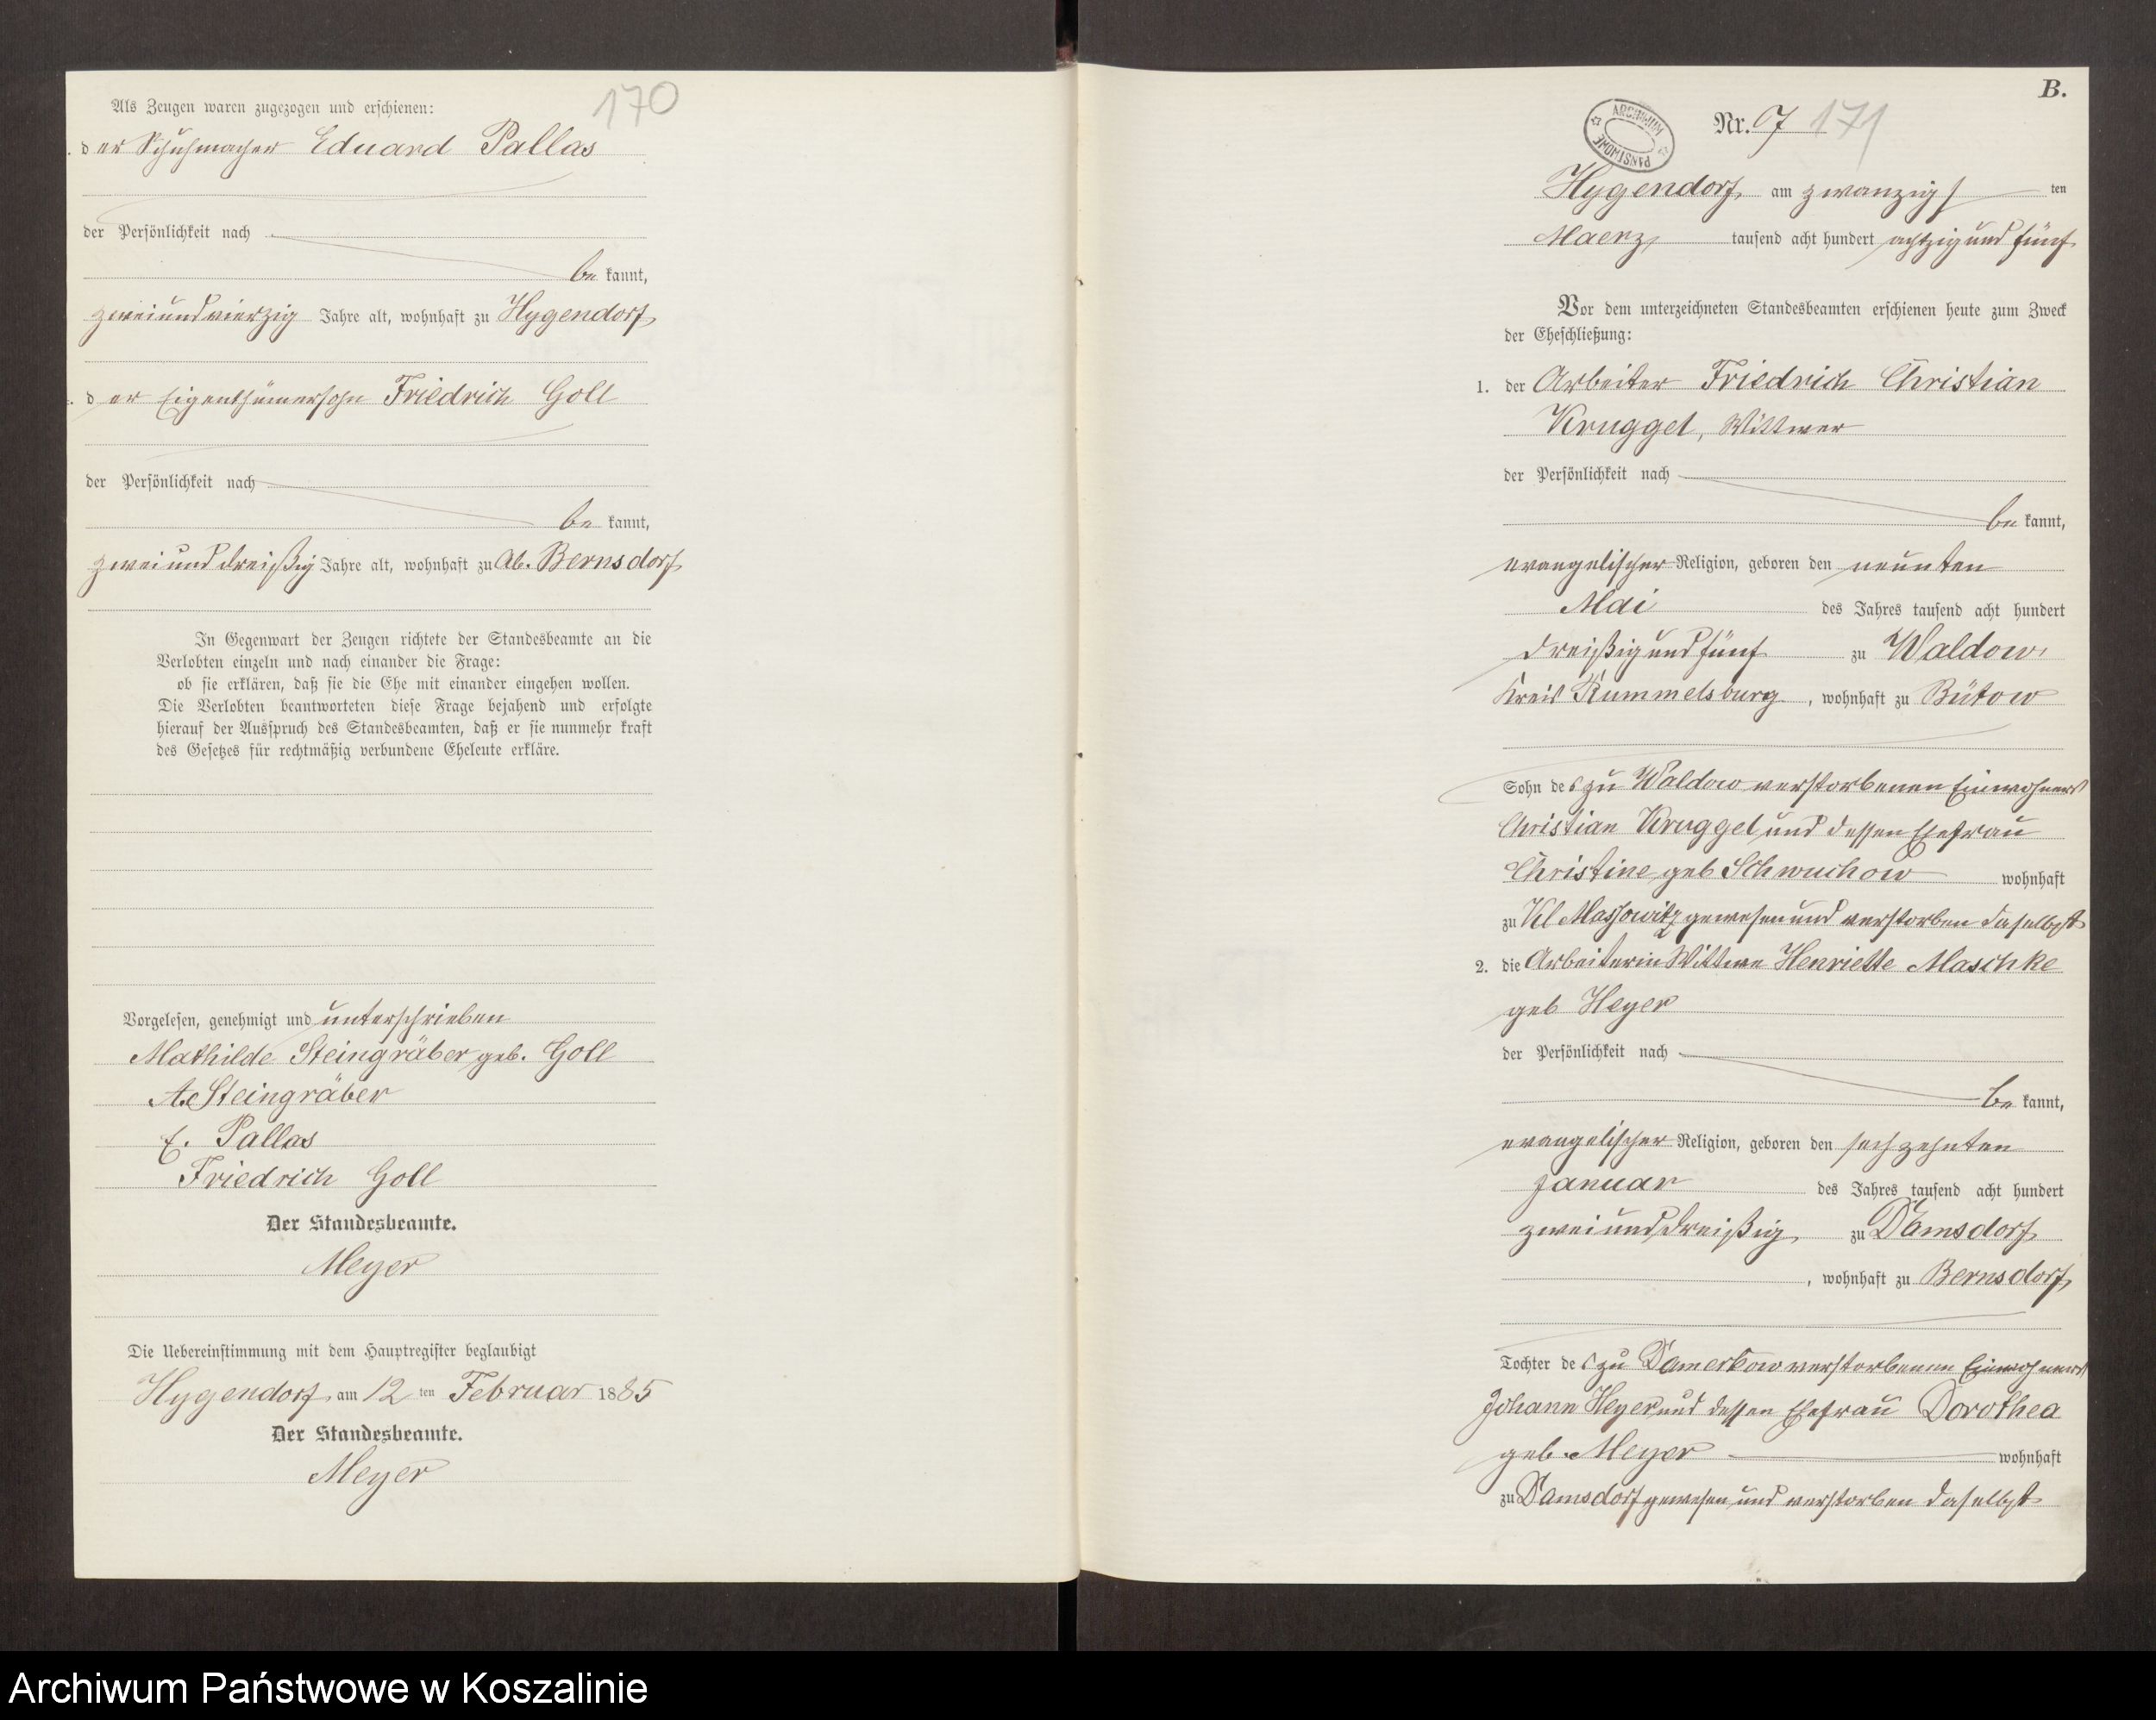 170
Als Zeugen waren zugezogen und erschienen:
der Schuhmacher Eduard Pallas
der Persönlichkeit nach
be kannt,
zweiundvierzig Jahre alt, wohnhaft zu Hygendorf
der Eigenthümersohn Friedrich Goll
der Persönlichkeit nach
be kannt,
zweiunddreißig Jahre alt, wohnhaft zu Ab. Bernsdorf
In Gegenwart der Zeugen richtete der Standesbeamte an die
Verlobten einzeln und nach einander die Frage:
ob sie erklären, daß sie die Ehe mit einander eingehen wollen.
Die Verlobten beantworteten diese Frage bejahend und erfolgte
hierauf der Ausspruch des Standesbeamten, daß er sie nunmehr kraft
des Gesetzes für rechtmäßig verbundene Eheleute erkläre.
Vorgelesen, genehmigt und unterschrieben
Mathilde Steingräber geb. Goll
Steingräber
E. Pallas
Friedrich Goll
Der Standesbeamte.
Meyer
Die Uebereinstimmung mit dem Hauptregister beglaubigt
Hygendorf am 12 ten Februar 1885
Der Standesbeamte.
Meyer
B.
ARCHIWUM PAŃSTWOWE
Nr. 7 171
Hygendorf am zwanzigs ten
Maerz tausend acht hundert achtzig und fünf
Vor dem unterzeichneten Standesbeamten erschienen heute zum Zweck
der Eheschließung:
1. der Arbeiter Friedrich Christian
Kruggel, Wittwer
der Persönlichkeit nach
be kannt,
evangelischer Religion, geboren den neunten
Mai des Jahres tausend acht hundert
dreißig und fünf zu Waldow,
Kreis Rummelsburg, wohnhaft zu Bütow
Sohn des zu Waldow verstorbenen Einwohners
Christian Kruggel und dessen Ehefrau
Christine geb Schwuchow wohnhaft
zu Kl Massowitz gewesen und verstorben daselbst
2. die Arbeiterin Wittwe Henriette Maschke
geb Heyer
der Persönlichkeit nach
be kannt,
evangelischer Religion, geboren den sechzehnten
Januar des Jahres tausend acht hundert
zweiunddreißig zu Damsdorf
, wohnhaft zu Bernsdorf
Tochter des zu Damerkow verstorbenen Einwohners
Johann Heyer und dessen Ehefrau Dorothea
geb. Meyer wohnhaft
zu Damsdorf gewesen und verstorben daselbst
Archiwum Państwowe w Koszalinie